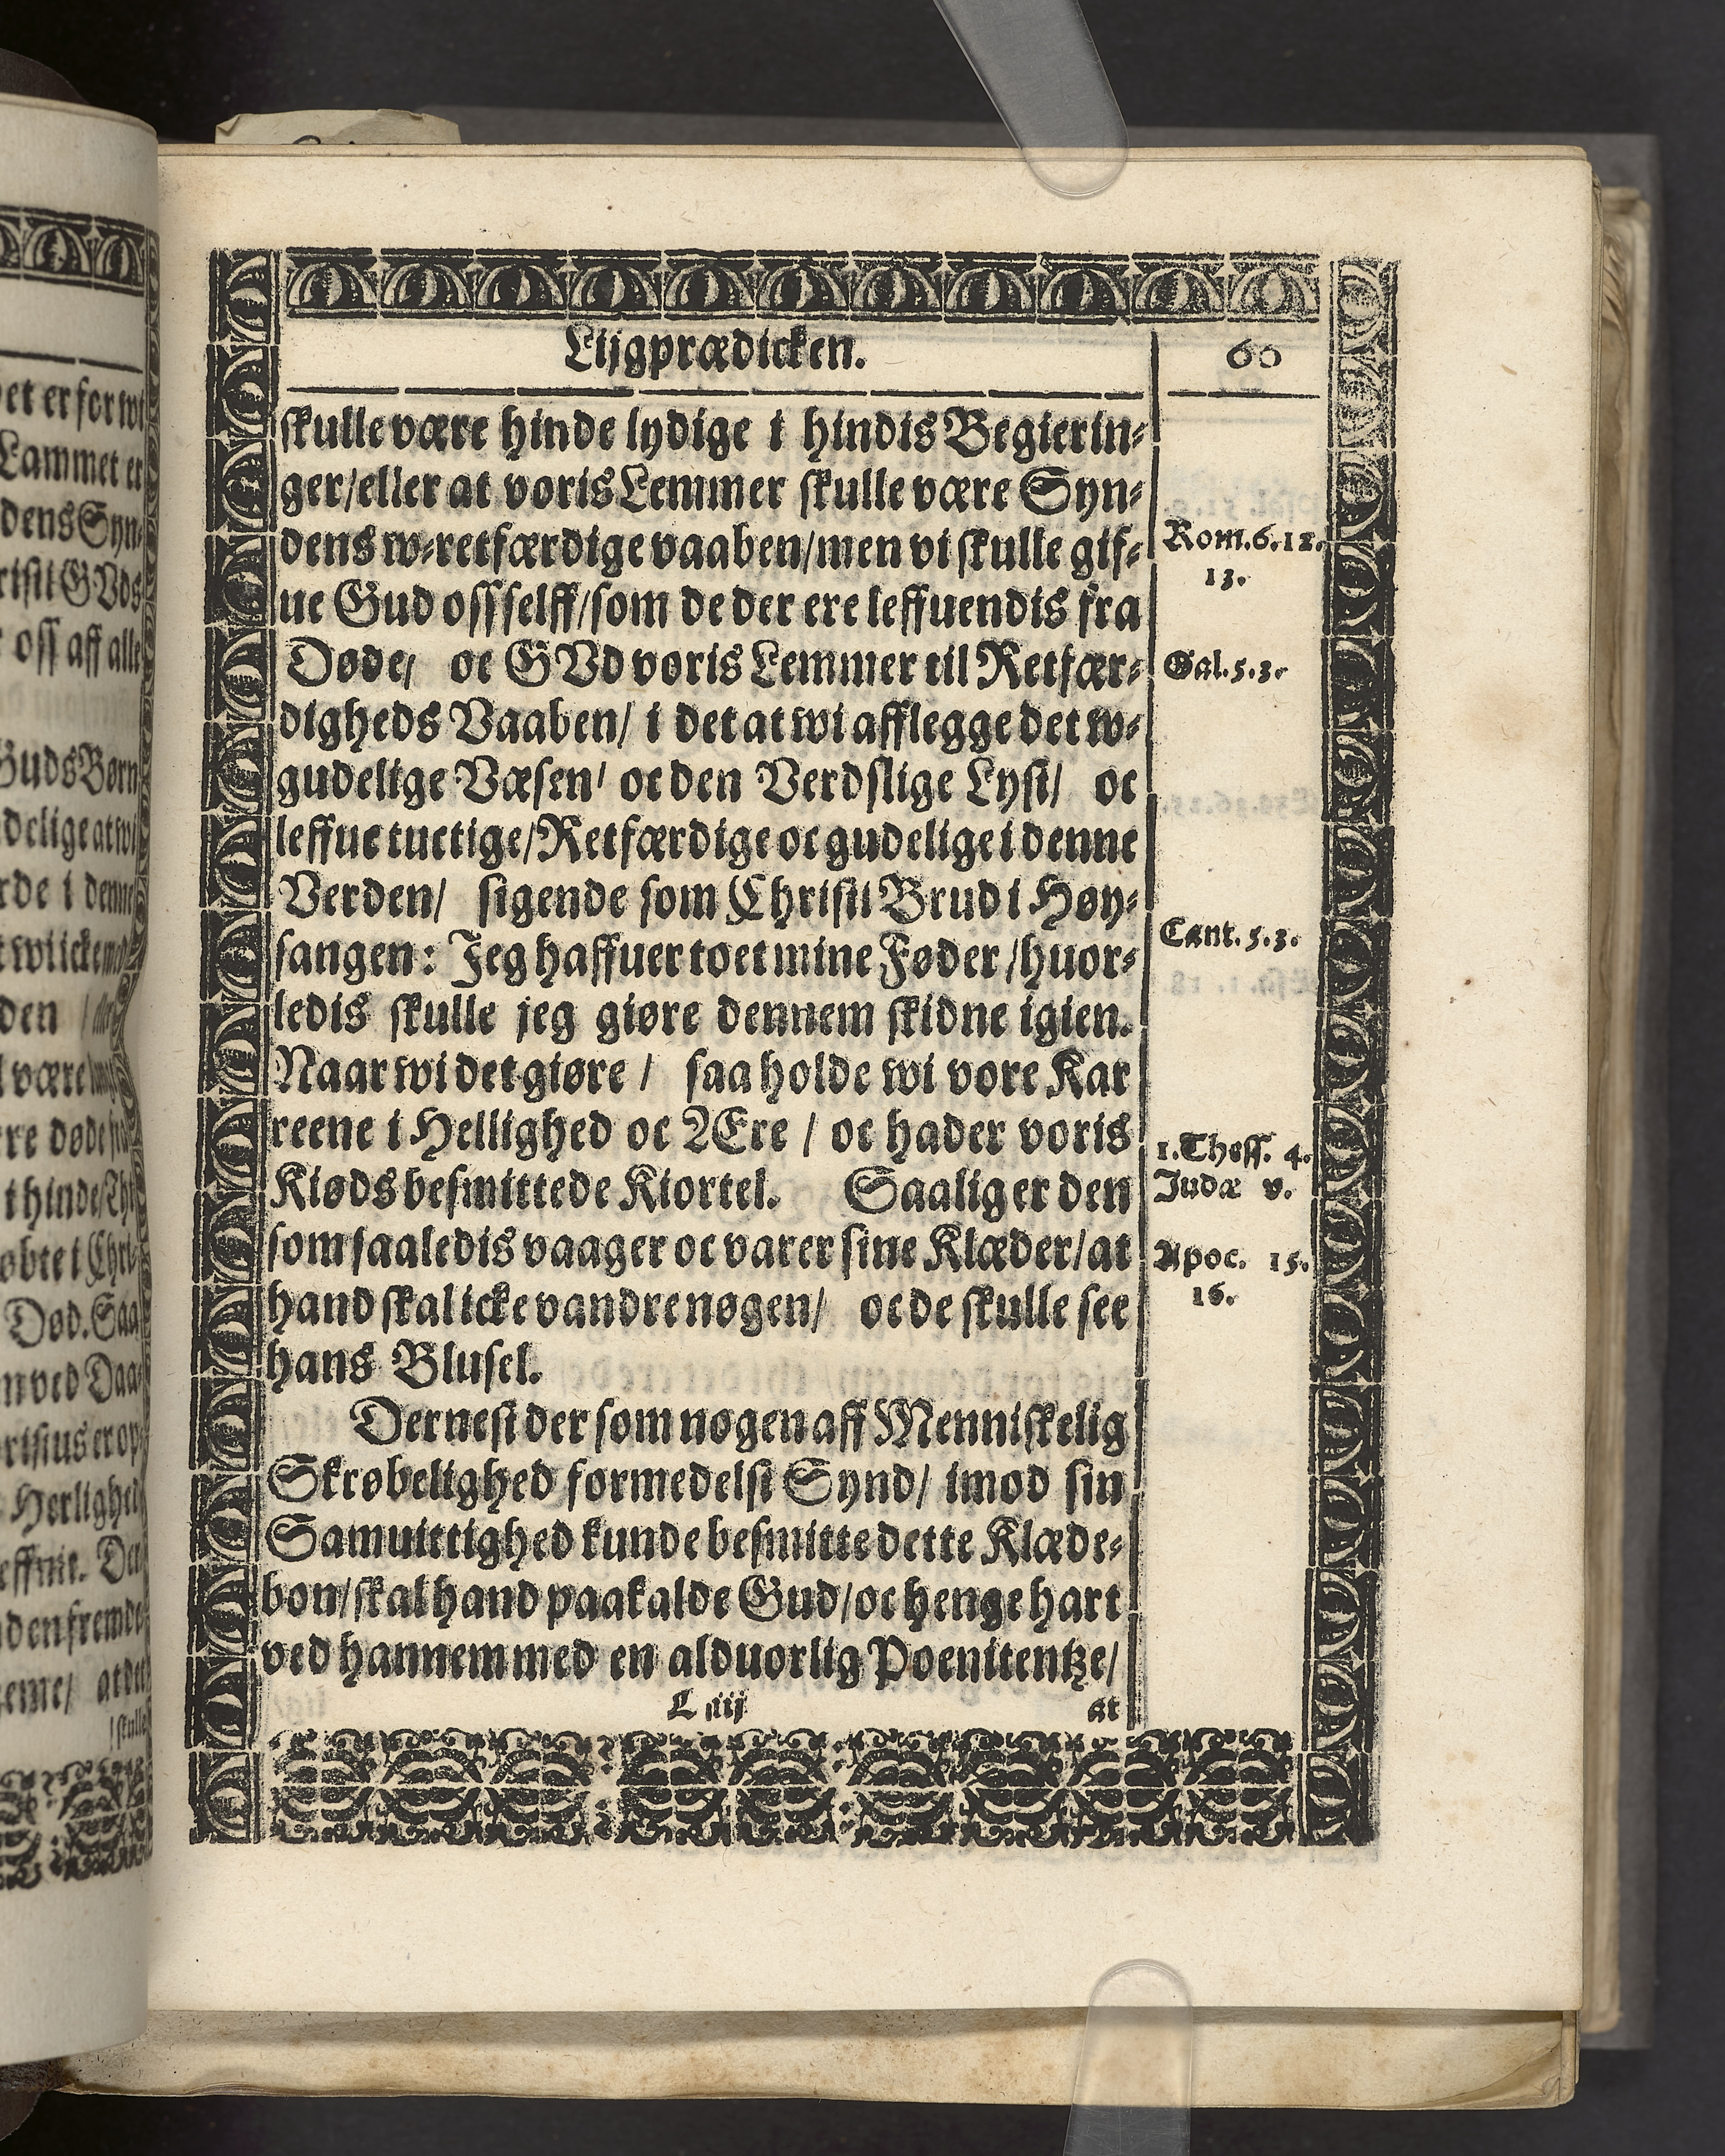 Lijgprædicken.
60
skulle være hinde lydige i hindis Begierin-
ger/eller at voris Lemmer skulle være Syn-
dens w-retfærdige vaaben/men vi skulle gif-
ue Gud oss selff/som de der ere leffuendis fra
Døde/ oc GVd voris Lemmer til Retfær-
digheds Vaaben/ i det at wi afflegge det w-
gudelige Væsen/ oc den Verdslige Lyst/ oc
leffue tuctige/Retfærdige oc gudelige i denne
Verden/ sigende som Christi Brud i Høy-
sangen: Jeg haffuer toet mine Føder/huor-
ledis skulle jeg giøre dennem skidne igien.
Naar wi det giøre / saa holde wi vore Kar
reene i Hellighed oc Ære / oc hader voris
Kiøds besmittede Kiortel. Saalig er den
som saaledis vaager oc varer sine Klæder/at
hand skal icke vandre nøgen/ oc de skulle see
hans Blusel.
Dernest der som nogen aff Menniskelig
Skrøbelighed formedelst Synd/ imod sin
Samuittighed kunde besmitte dette Klæde-
bon/skal hand paakalde Gud/oc henge hart
ved hannem med en alduorlig Poenitentze/
L iij
at
Rom.6.12.
13.
Gal.5.3.
Cant.5.3.
1.Thess. 4.
Judæ v.
Apoc. 15.
16.